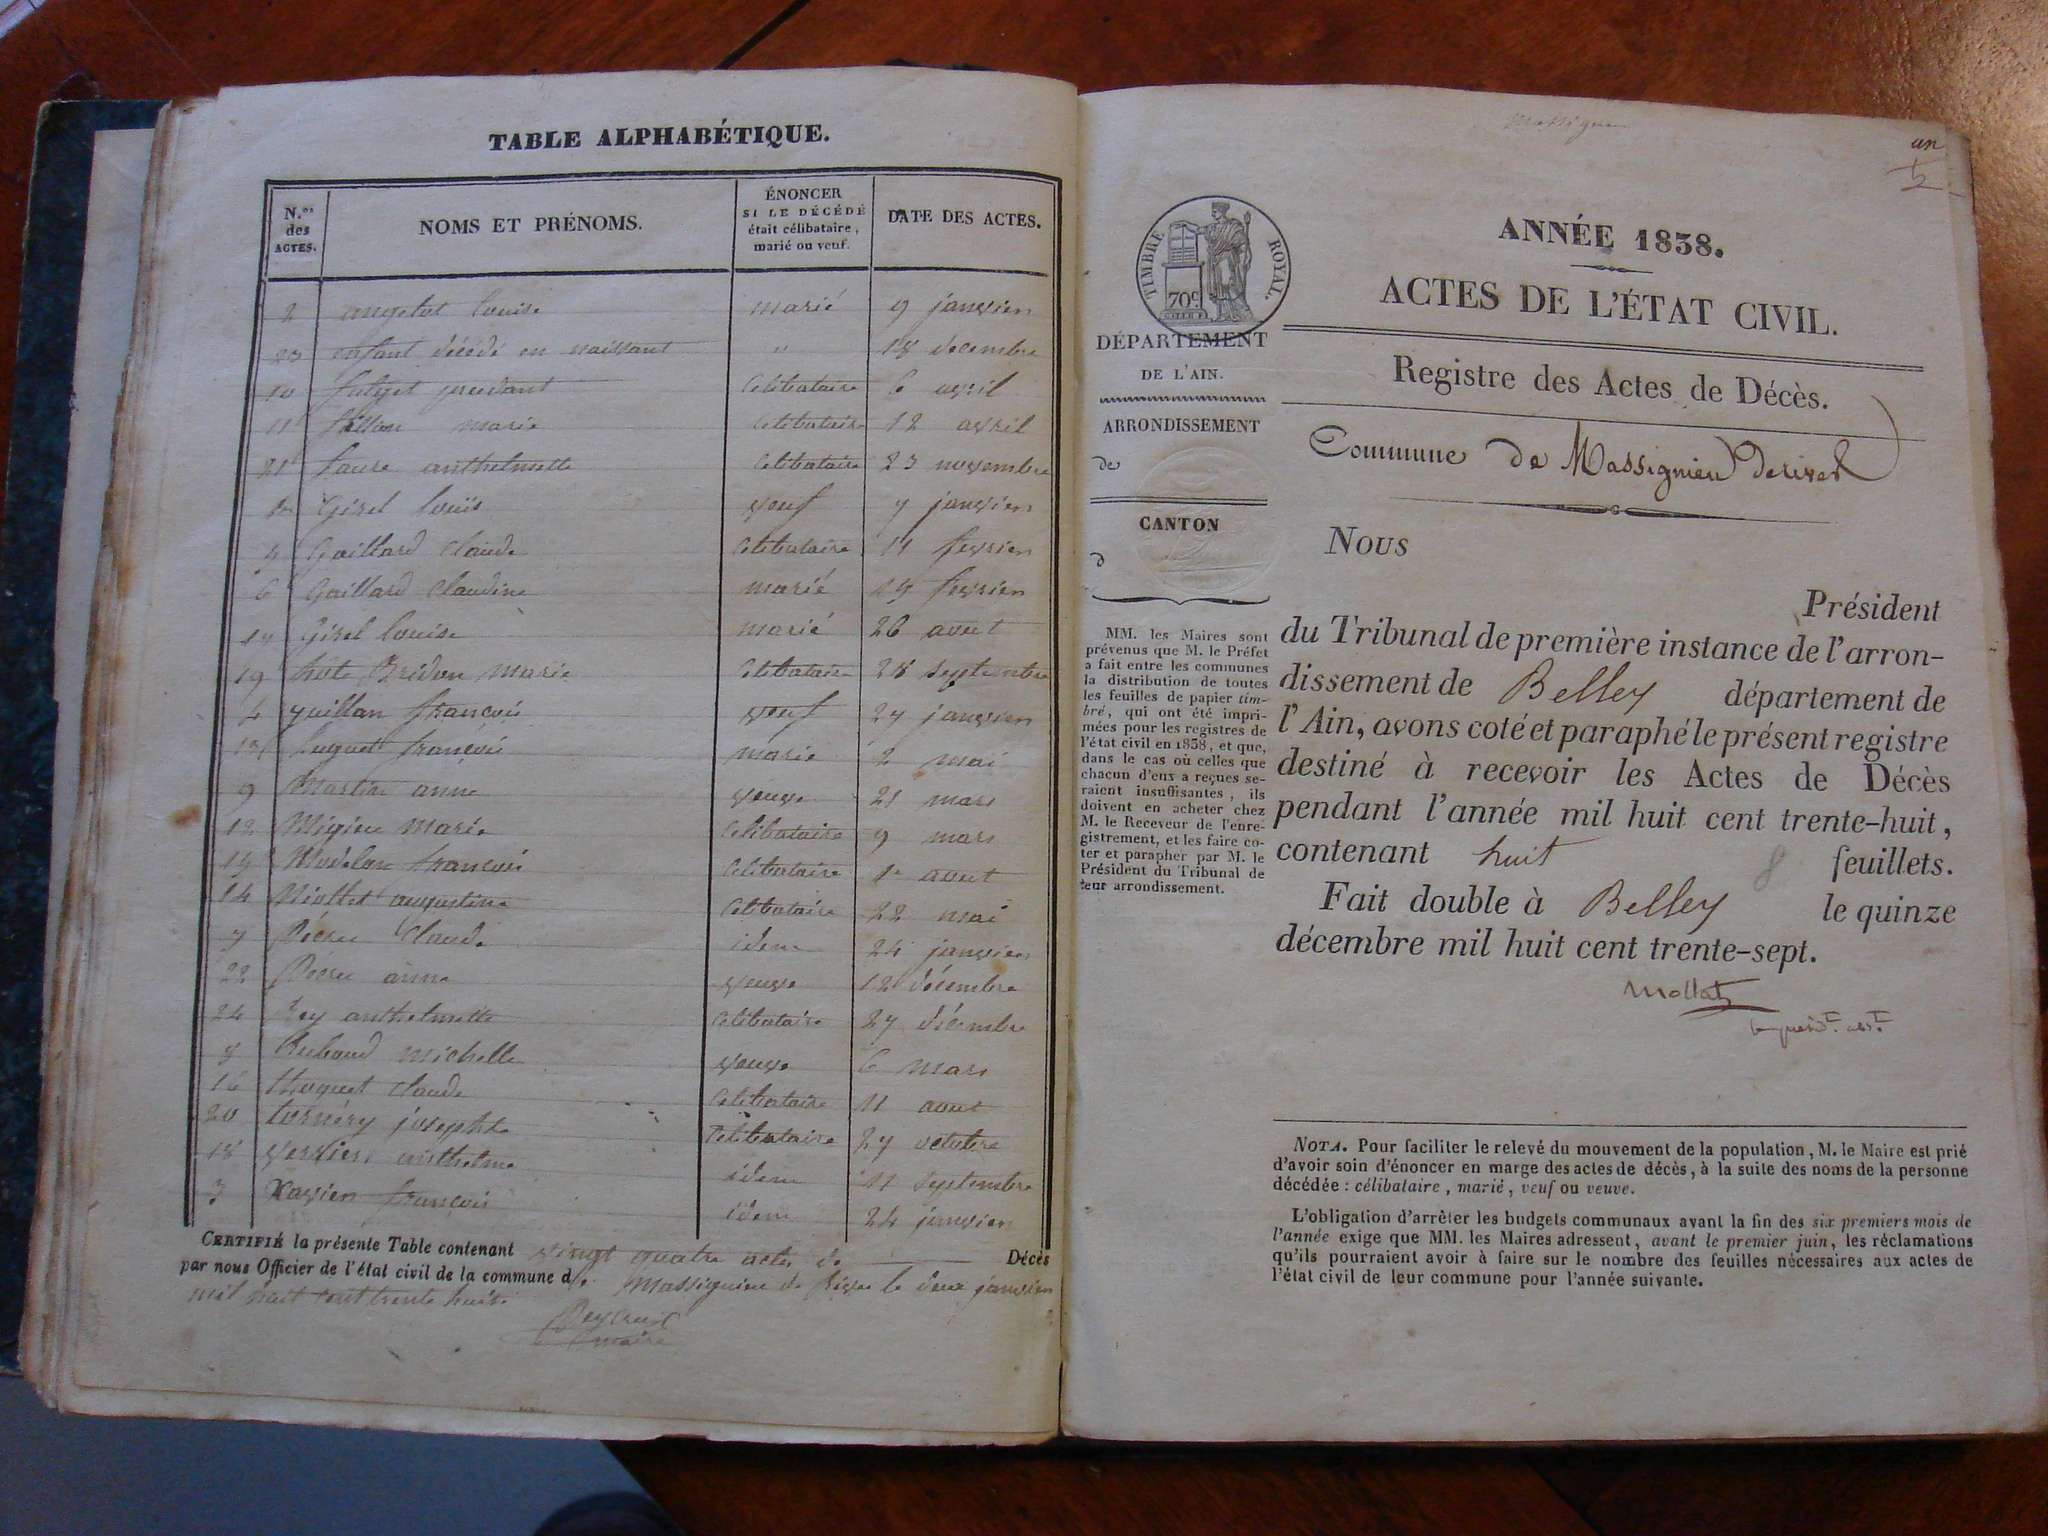 TABLE ALPHABÉTIQUE.
N.os des ACTES.
NOMS ET PRÉNOMS.
ÉNONCER
SI LE DÉCÉDÉ
était célibataire,
marié ou veuf.
DATE DES ACTES.
2 angelot louise marié 9 janvier
enfant décédé en naissant " 18 decembre
10 célibataire 6 avril
11 marie célibataire 12 avril
21 faure anthelmette célibataire 23 novembre
Girel louis veuf 7 janvier
Gaillard Claude célibataire 11 fevrier
6 Gaillard Claudine marié 19 fevrier
17 Girel louise marié 26 aout
19 marie célibataire 28 septembre
4 françois veuf 27 janvier
françois marié 2 mai
9 Martin anne veuve 21 mars
12 marie célibataire 9 mars
15 françois célibataire 1er aout
14 augustine célibataire 22 mai
Claude idem 24 janvier
22 anne veuve 12 décembre
24 Rey anthelmette célibataire 27 décembre
Rubaud michelle veuve 6 mars
16 Claude célibataire 11 aout
20 josephte célibataire 27 octobre
18 anthelme idem 11 septembre
3 Xavier françois idem 24 janvier
CERTIFIÉ la présente Table contenant vingt quatre actes de Décès
par nous Officier de l'état civil de la commune de Massignieu de Rives le deux janvier
mil huit cent trente huit.
maire
un
ANNÉE 1838.
ACTES DE L'ÉTAT CIVIL.
TIMBRE ROYAL.
70c
DÉPARTEMENT
DE L'AIN.
ARRONDISSEMENT
de
CANTON
d
Registre des Actes de Décès.
Commune de Massignieu derives
MM. les Maires sont
prévenus que M. le Préfet
a fait entre les communes
la distribution de toutes
les feuilles de papier tim-
bré, qui ont été impri-
mées pour les registres de
l'état civil en 1838, et que,
dans le cas où celles que
chacun d'eux a reçues se-
raient insuffisantes, ils
doivent en acheter chez
M. le Receveur de l'enre-
gistrement, et les faire co-
ter et parapher par M. le
Président du Tribunal de
leur arrondissement.
NOUS
Président
du Tribunal de première instance de l'arron-
dissement de Belley département de
l'Ain, avons coté et paraphé le présent registre
destiné à recevoir les Actes de Décès
pendant l'année mil huit cent trente-huit,
contenant huit 8 feuillets.
Fait double à Belley le quinze
décembre mil huit cent trente-sept.
Mollat
NOTA. Pour faciliter le relevé du mouvement de la population, M. le Maire est prié
d'avoir soin d'énoncer en marge des actes de décès, à la suite des noms de la personne
décédée : célibataire, marié, veuf ou veuve.
L'obligation d'arrêter les budgets communaux avant la fin des six premiers mois de
l'année exige que MM. les Maires adressent, avant le premier juin, les réclamations
qu'ils pourraient avoir à faire sur le nombre des feuilles nécessaires aux actes de
l'état civil de leur commune pour l'année suivante.